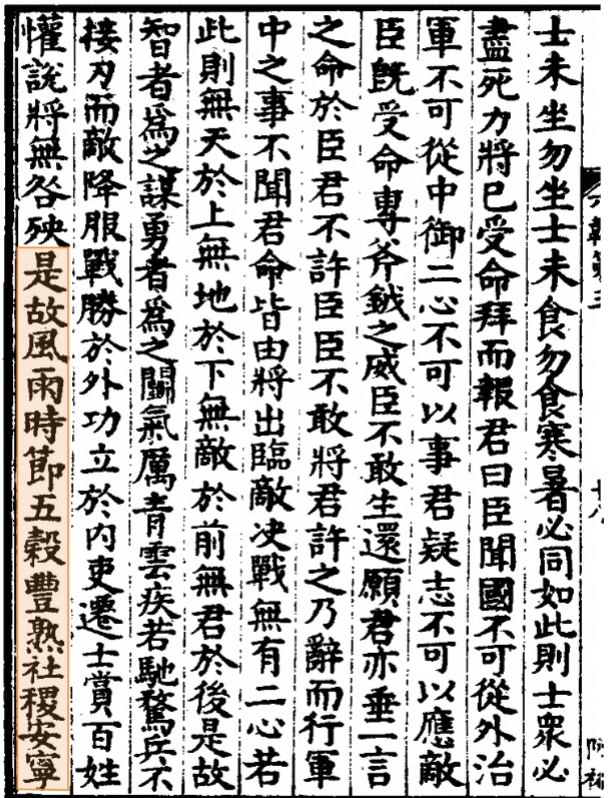 士未坐勿坐士未食勿食寒暑必同如此則士衆必
盡死力將已受命拜而報君曰臣聞國不可從外治
軍不可從中御二心不可以事君疑志不可以應敵
臣旣受命專斧鉞之威臣不敢生還願君亦垂一言
之命於臣君不許臣臣不敢將君許之乃辭而行軍
中之事不聞君命皆由將出臨敵决戰無有二心若
此則無天於上無地於下無敵於前無君於後是故
智者爲之謀勇者爲之鬬氣厲青雲疾若馳騖兵不
接刃而敵降服戰勝於外功立於内吏遷士賞百姓
懽說將無咎殃是故風雨時節五穀豐熟社稷安寧